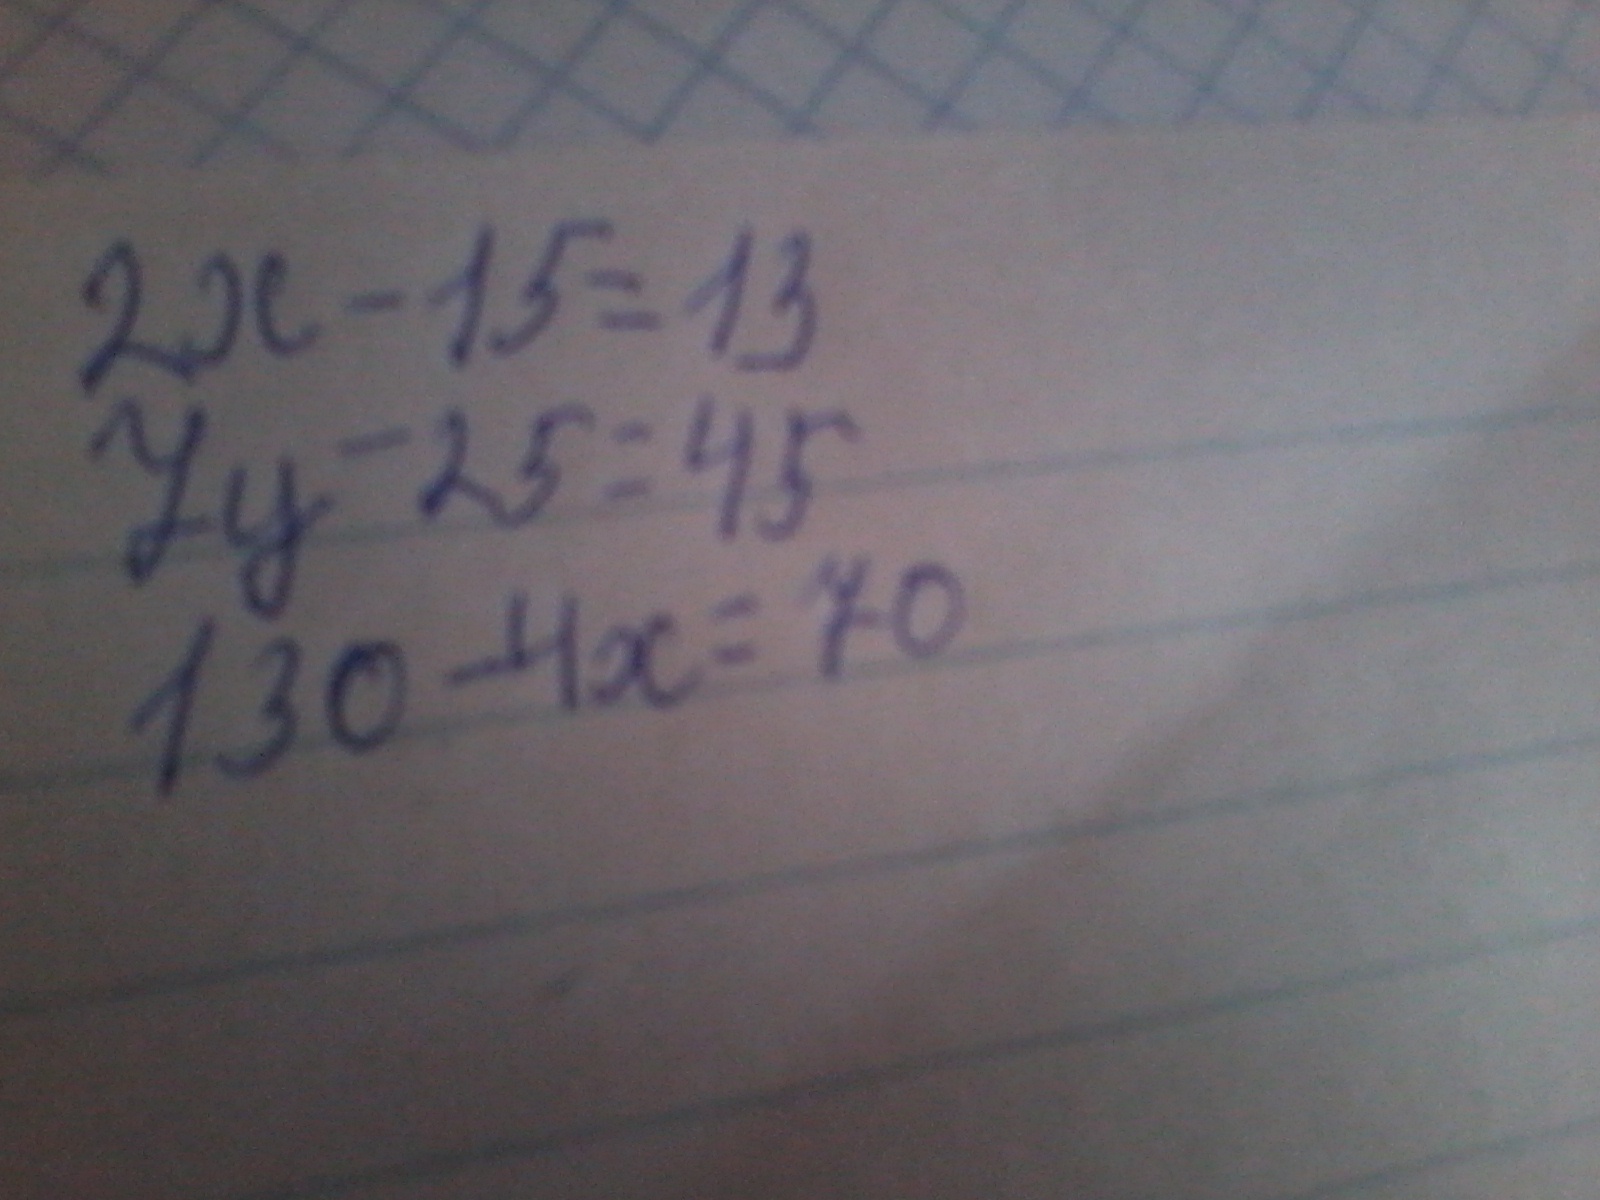 2x - 15 = 13
7y - 25 = 45
130 - 4x = 70